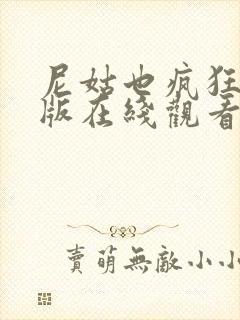 尼姑也疯狂
版在綫觀看
賣萌無敵小小